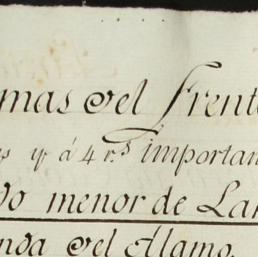 mas del frente
s y á 4 r.s importan
do menor de Lan
nda del Álamo